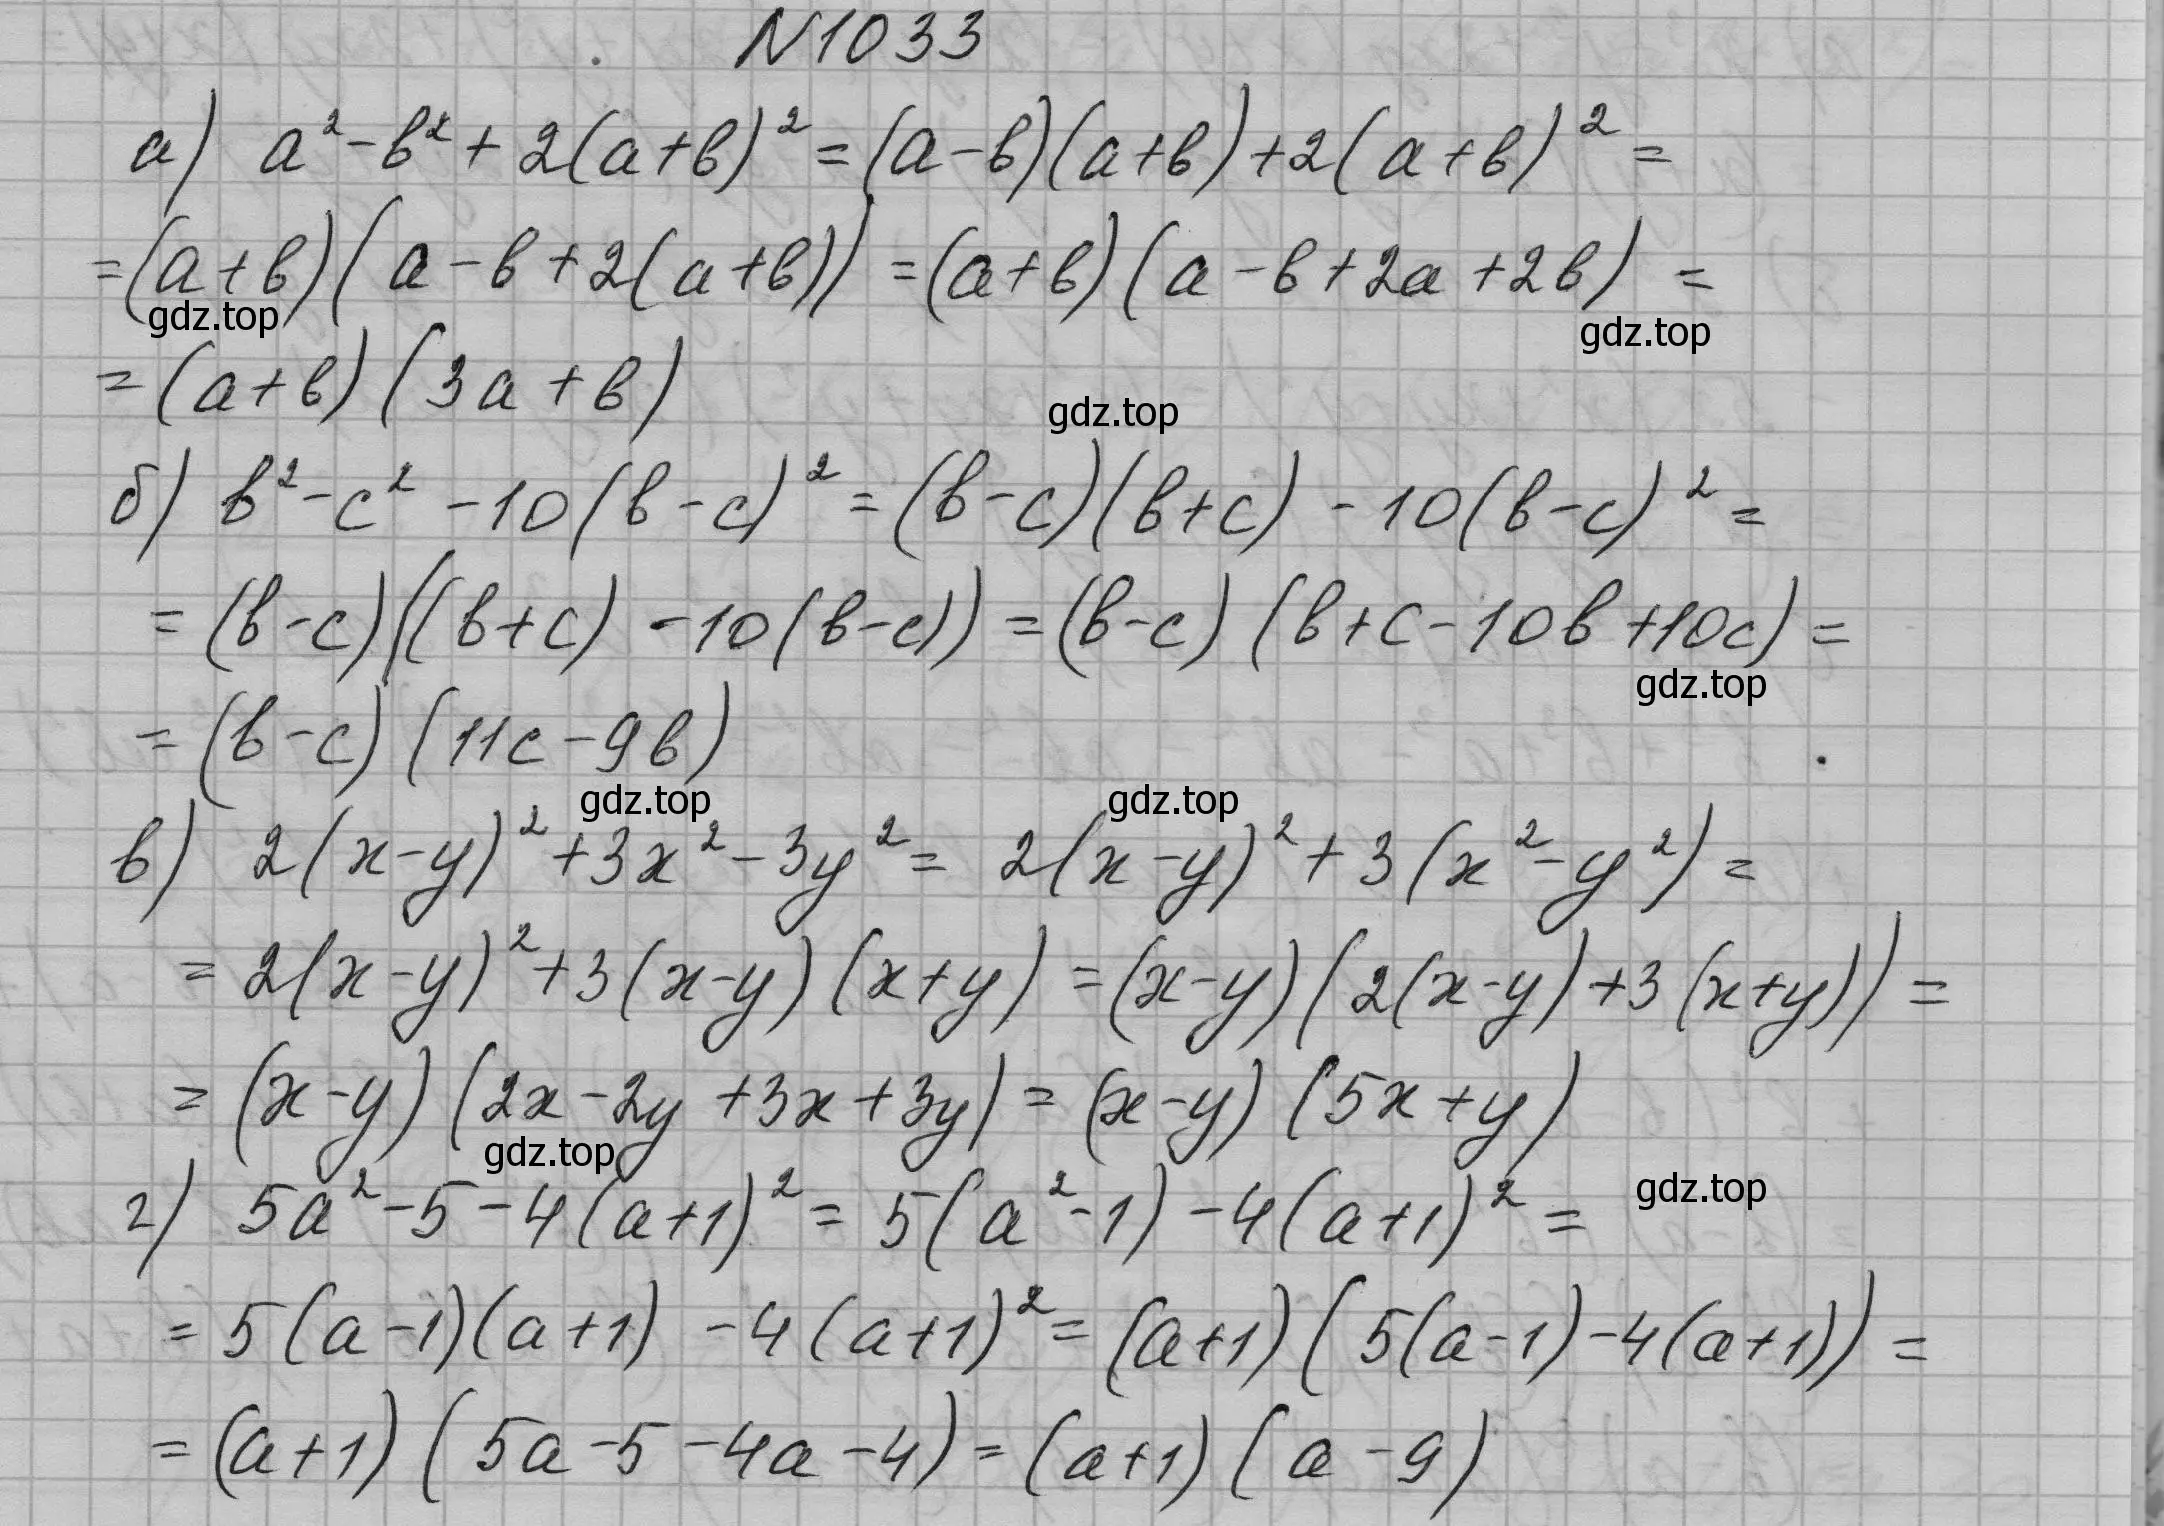 N1033
а) a² - b² + 2(a+b)² = (a-b)(a+b) + 2(a+b)² =
= (a+b)(a-b+2(a+b)) = (a+b)(a-b+2a+2b) =
gdz.top
gdz.top
= (a+b)(3a+b)
gdz.top
б) b² - c² - 10(b-c)² = (b-c)(b+c) - 10(b-c)² =
= (b-c)((b+c) - 10(b-c)) = (b-c)(b+c-10b+10c) =
gdz.top
= (b-c)(11c-9b)
gdz.top
gdz.top
в) 2(x-y)² + 3x² - 3y² = 2(x-y)² + 3(x²-y²) =
= 2(x-y)² + 3(x-y)(x+y) = (x-y)(2(x-y)+3(x+y)) =
= (x-y)(2x-2y+3x+3y) = (x-y)(5x+y)
gdz.top
г) 5a² - 5 - 4(a+1)² = 5(a²-1) - 4(a+1)² =
gdz.top
= 5(a-1)(a+1) - 4(a+1)² = (a+1)(5(a-1)-4(a+1)) =
= (a+1)(5a-5-4a-4) = (a+1)(a-9)